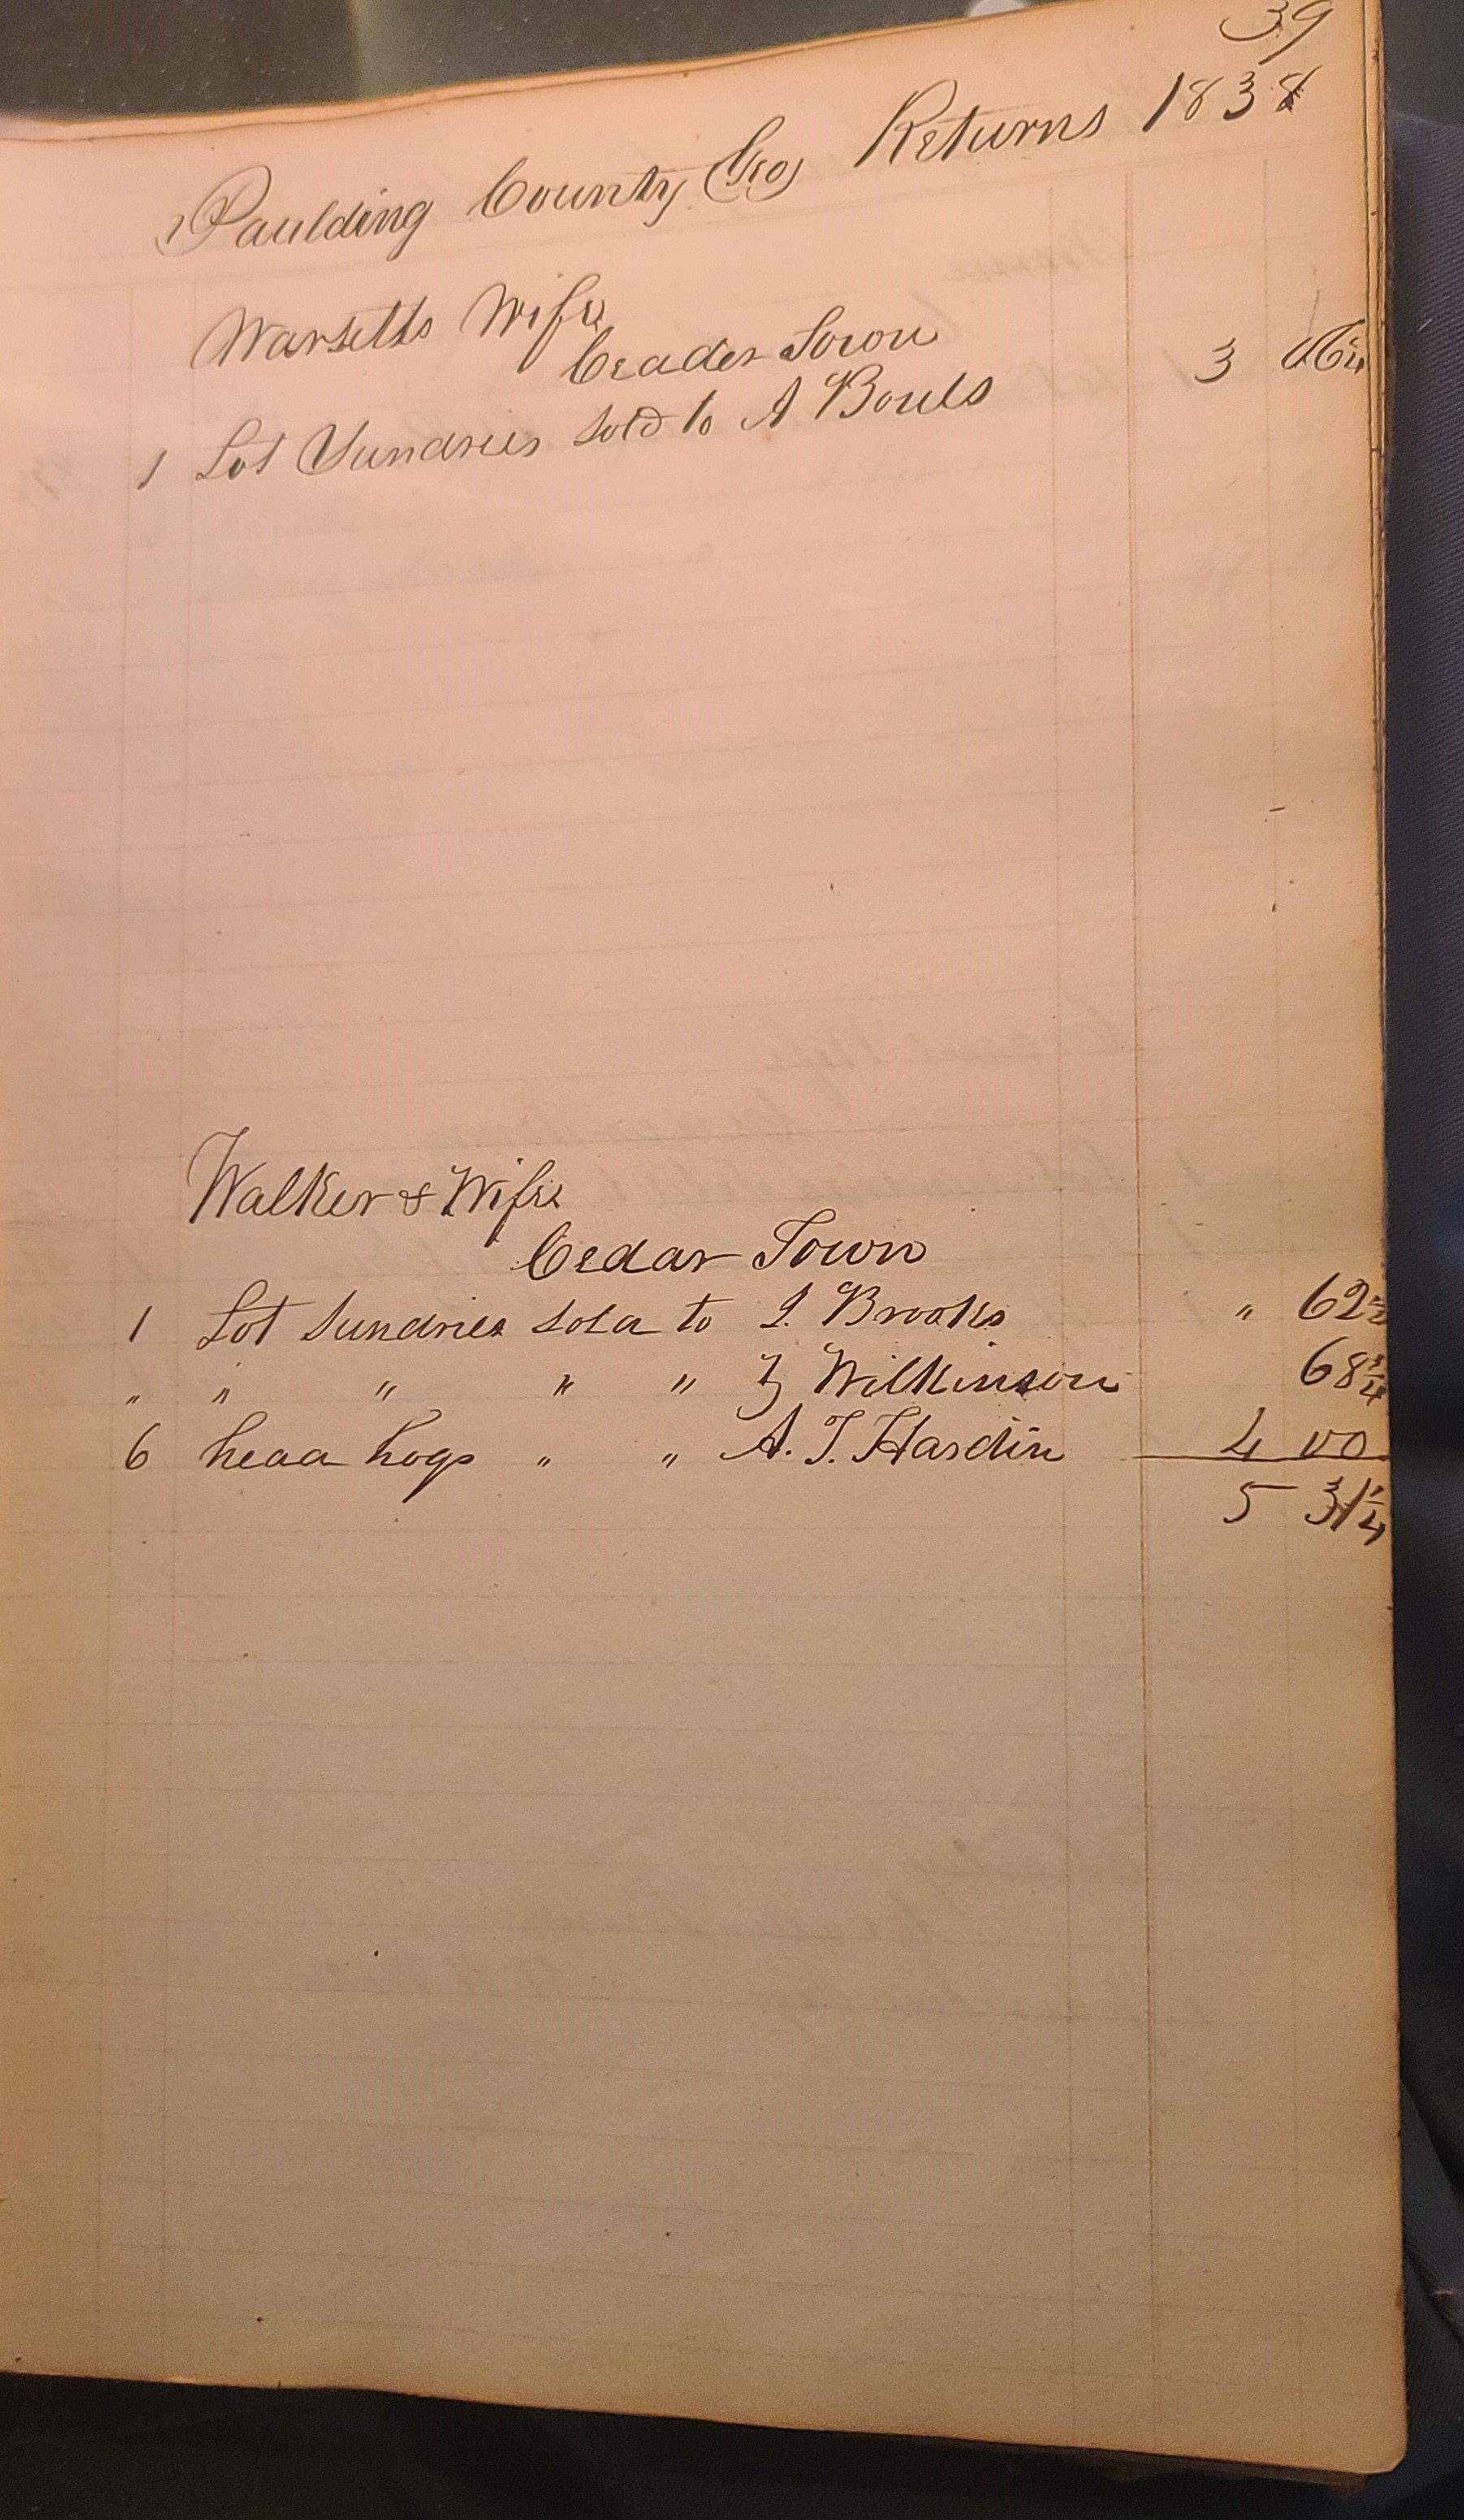 39
Paulding County Geo Returns 1838
Warsetts Wife
Ceader Town
1 Lot Sundries sold to A Bowls 3
Walker & Wife
Cedar Town
1 Lot Sundries sold to I. Brooks " 62½
" " " " " Z Wilkinson 68¾
6 head hogs " " A. T. Hardin 4 00
5 31¼